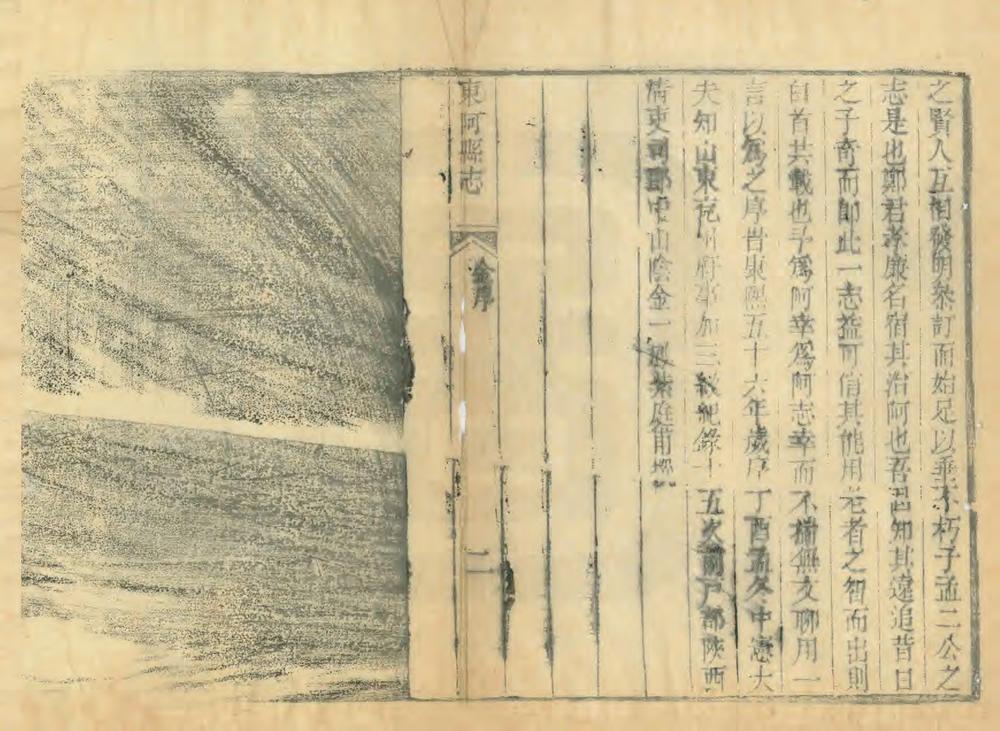 之賢人互相發明叅訂而始足以垂不朽子孟二公之
志是也鄭君孝廉名宿其治阿也吾固知其遠追昔日
之子奇而即此一志益可信其能用老者之智而出則
白首共載也予爲阿幸爲阿志幸而不揣無文聊用一
言以爲之序旹康熙五十六年歲序丁酉孟冬中憲大
夫知山東兗州府事加三級紀錄十五次前戶部陝西
清吏司郎中山陰金一鳳紫庭甫
東阿縣志
金序
二